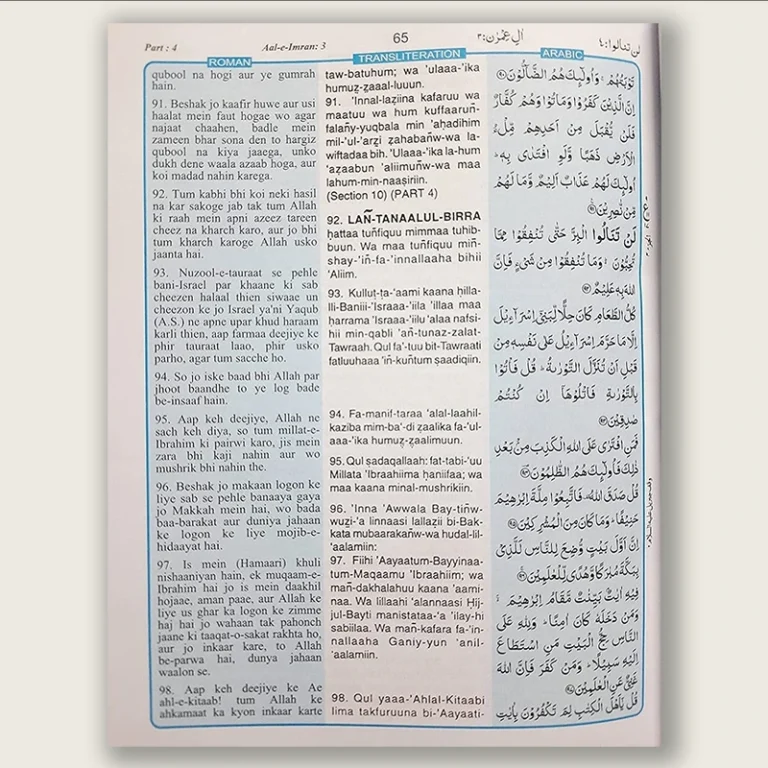 Part : 4
Aal-e-Imran: 3
65
اٰلِ عِمْرٰن:٣
لن تنالوا:٤
ROMAN
qubool na hogi aur ye gumrah
hain.
91. Beshak jo kaafir huwe aur usi
haalat mein faut hogae wo agar
najaat chaahen, badle mein
zameen bhar sona den to hargiz
qubool na kiya jaaega, unko
dukh dene waala azaab hoga, aur
koi madad nahin karega.
92. Tum kabhi bhi koi neki hasil
na kar sakoge jab tak tum Allah
ki raah mein apni azeez tareen
cheez na kharch karo, aur jo bhi
tum kharch karoge Allah usko
jaanta hai.
93. Nuzool-e-tauraat se pehle
bani-Israel par khaane ki sab
cheezen halaal thien siwaae un
cheezon ke jo Israel ya'ni Yaqub
(A.S.) ne apne upar khud haraam
karli thien, aap farmaa deejiye ke
phir tauraat laao, phir usko
parho, agar tum sacche ho.
94. So jo iske baad bhi Allah par
jhoot baandhe to ye log bade
be-insaaf hain.
95. Aap keh deejiye, Allah ne
sach keh diya, so tum millat-e-
Ibrahim ki pairwi karo, jis mein
zara bhi kaji nahin aur wo
mushrik bhi nahin the.
96. Beshak jo makaan logon ke
liye sab se pehle banaaya gaya
jo Makkah mein hai, wo bada
baa-barakat aur duniya jahaan
ke logon ke liye mojib-e-
hidaayat hai.
97. Is mein (Hamaari) khuli
nishaaniyan hain, ek muqaam-e-
Ibrahim hai jo is mein daakhil
hojaae, aman paae, aur Allah ke
liye us ghar ka logon ke zimme
haj hai jo wahaan tak pahonch
jaane ki taaqat-o-sakat rakhta ho,
aur jo inkaar kare, to Allah
be-parwa hai, dunya jahaan
waalon se.
98. Aap keh deejiye ke Ae
ahl-e-kitaab! tum Allah ke
ahkamaat ka kyon inkaar karte
TRANSLITERATION
taw-batuhum; wa 'ulaaa-'ika
humuẓ-ẓaaal-luuun.
91. 'Innal-laẓiina kafaruu wa
maatuu wa hum kuffaaruñ-
falañy-yuqbala min 'aḥadihim
mil-'ul-'arẓi ẓahabañw-wa la-
wiftadaa bih. 'Ulaaa-'ika la-hum
'aẓaabun 'aliimuñw-wa maa
lahum-min-naaṣiriin.
(Section 10) (PART 4)
92. LAÑ-TANAALUL-BIRRA
ḥattaa tuñfiquu mimmaa tuhib-
buun. Wa maa tuñfiquu miñ-
shay-'iñ-fa-'innallaaha bihii
'Aliim.
93. Kulluṭ-ṭa-'aami kaana ḥilla-
lli-Baniii-'Israaa-'iila 'illaa maa
ḥarrama 'Israaa-'iilu 'alaa nafsi-
hii min-qabli 'añ-tunaz-zalat-
Tawraah. Qul fa'-tuu bit-Tawraati
fatluuhaaa 'iñ-kuñtum ṣaadiqiin.
94. Fa-manif-taraa 'alal-laahil-
kaziba mim-ba'-di ẓaalika fa-'ul-
aaa-'ika humuẓ-ẓaalimuun.
95.Qul ṣadaqallaah: fat-tabi-'uu
Millata 'Ibraahiima ḥaniifaa; wa
maa kaana minal-mushrikiin.
96. 'Inna 'Awwala Bay-tiñw-
wuẓi-'a linnaasi lallaẓii bi-Bak-
kata mubaarakañw-wa hudal-lil-
'aalamiin:
97. Fiihi 'Aayaatum-Bayyinaa-
tum-Maqaamu 'Ibraahiim; wa
mañ-dakhalahuu kaana 'aami-
naa. Wa lillaahi 'alannaasi Ḥij-
jul-Bayti manistataa-'a 'ilay-hi
sabiilaa. Wa mañ-kafara fa-'in-
nallaaha Ganiy-yun 'anil-
'aalamiin.
98. Qul yaaa-'Ahlal-Kitaabi
lima takfuruuna bi-'Aayaati-
ARABIC
تَوْبَتُهُمْ ۚ وَاُولٰٓئِكَ هُمُ الضَّآلُّوْنَ ﴿٩٠﴾
اِنَّ الَّذِيْنَ كَفَرُوْا وَمَاتُوْا وَهُمْ كُفَّارٌ
فَلَنْ يُّقْبَلَ مِنْ اَحَدِهِمْ مِّلْءُ
الْاَرْضِ ذَهَبًا وَّلَوِ افْتَدٰى بِهٖ ؕ
اُولٰٓئِكَ لَهُمْ عَذَابٌ اَلِيْمٌ وَّمَا لَهُمْ
مِّنْ نّٰصِرِيْنَ ﴿٩١﴾
لَنْ تَنَالُوا الْبِرَّ حَتّٰى تُنْفِقُوْا مِمَّا
تُحِبُّوْنَ ؕ وَمَا تُنْفِقُوْا مِنْ شَيْءٍ فَاِنَّ
اللّٰهَ بِهٖ عَلِيْمٌ ﴿٩٢﴾
كُلُّ الطَّعَامِ كَانَ حِلًّا لِّبَنِيْٓ اِسْرَآءِيْلَ
اِلَّا مَا حَرَّمَ اِسْرَآءِيْلُ عَلٰى نَفْسِهٖ مِنْ
قَبْلِ اَنْ تُنَزَّلَ التَّوْرٰىةُ ؕ قُلْ فَاْتُوْا
بِالتَّوْرٰىةِ فَاتْلُوْهَآ اِنْ كُنْتُمْ
صٰدِقِيْنَ ﴿٩٣﴾
فَمَنِ افْتَرٰى عَلَى اللّٰهِ الْكَذِبَ مِنْۢ بَعْدِ
ذٰلِكَ فَاُولٰٓئِكَ هُمُ الظّٰلِمُوْنَ ﴿٩٤﴾
قُلْ صَدَقَ اللّٰهُ ۫ فَاتَّبِعُوْا مِلَّةَ اِبْرٰهِيْمَ
حَنِيْفًا ؕ وَمَا كَانَ مِنَ الْمُشْرِكِيْنَ ﴿٩٥﴾
اِنَّ اَوَّلَ بَيْتٍ وُّضِعَ لِلنَّاسِ لَلَّذِيْ
بِبَكَّةَ مُبٰرَكًا وَّهُدًى لِّلْعٰلَمِيْنَ ﴿٩٦﴾
فِيْهِ اٰيٰتٌۢ بَيِّنٰتٌ مَّقَامُ اِبْرٰهِيْمَ ۬
وَمَنْ دَخَلَهٗ كَانَ اٰمِنًا ؕ وَلِلّٰهِ عَلَى
النَّاسِ حِجُّ الْبَيْتِ مَنِ اسْتَطَاعَ
اِلَيْهِ سَبِيْلًا ؕ وَمَنْ كَفَرَ فَاِنَّ اللّٰهَ
غَنِيٌّ عَنِ الْعٰلَمِيْنَ ﴿٩٧﴾
قُلْ يٰٓاَهْلَ الْكِتٰبِ لِمَ تَكْفُرُوْنَ بِاٰيٰتِ